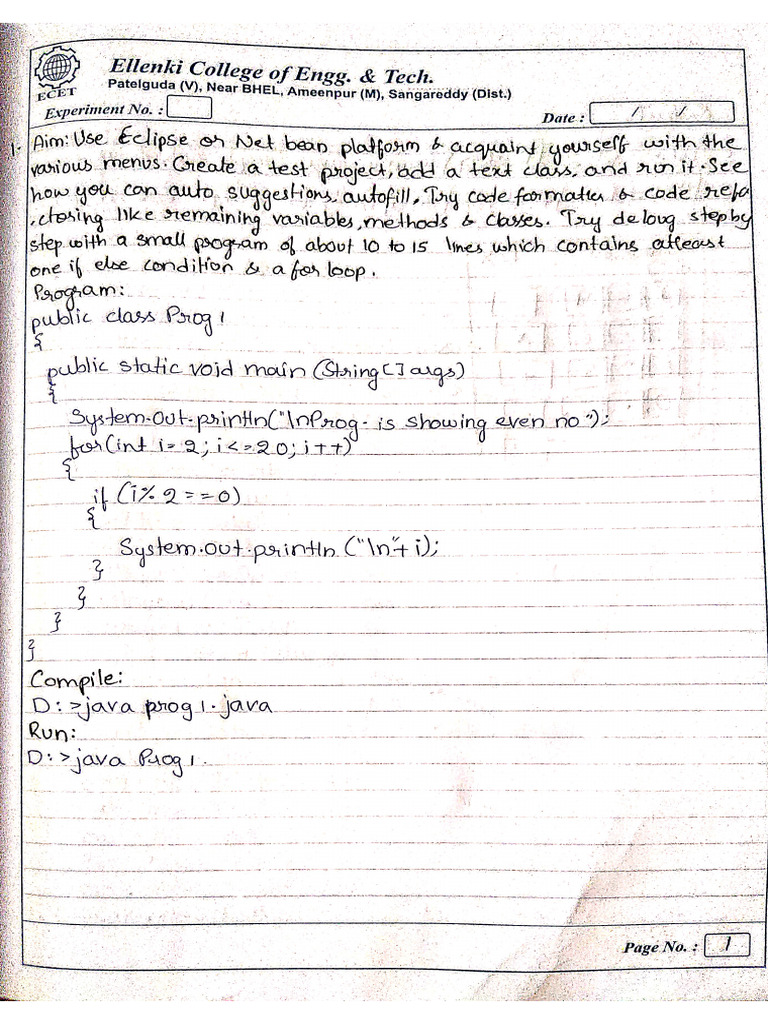 Ellenki College of Engg. & Tech.
Patelguda (V), Near BHEL, Ameenpur (M), Sangareddy (Dist.)
ECET
Experiment No. :
Date : / /
1. Aim: Use Eclipse or Net bean platform & acquaint yourself with the
various menus. Create a test project, add a text class, and run it. See
how you can auto suggestions, autofill, Try code formatter & code refa
,ctoring like remaining variables, methods & classes. Try debug step by
step with a small program of about 10 to 15 lines which contains atleast
one if else condition & a for loop.
Program:
public class Prog1
{
public static void main (String[] args)
{
System.out.println("\nProg. is showing even no");
for(int i=2; i<=20; i++)
{
if (i%2==0)
{
System.out.println ("\n"+i);
}
}
}
}
Compile:
D:>java prog1.java
Run:
D:>java Prog1.
Page No. : 1